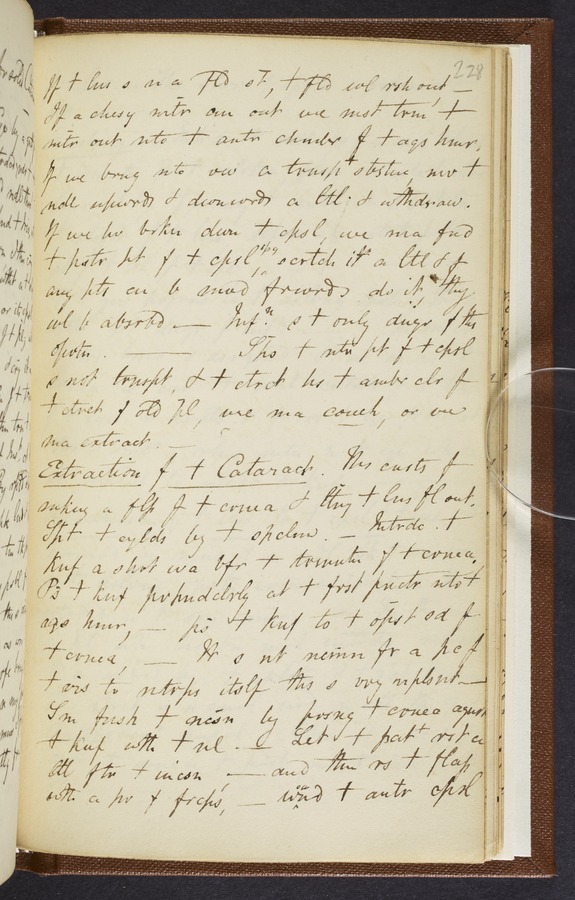 228
If + lns s n a Fld st, + fld wl rsh out —
If a chesy mtr cm out we mst trn +
mtr out nto + antr chmbr f + aqs hmr.
If we brng nto vw a trnsp+ sbstnc, mv +
ndl upwrds & dwnwrds a ltl & wthdraw.
If we hv brkn dwn + cpsl, we ma fnd
+ pstr pt f + cpsl scrtch it a ltl & f
any pts cn b mvd frwrds do it, thy
wl b absrbd — Inf.n s + only dngr f ths
oprtn. — Spo + ntr pt f + cpsl
s not trnspt, & + ctrct hs + ambr clr f
+ ctrct f old Pl, we ma couch, or we
ma extract. —
Extraction f + Cataract. Ths cnsts f
mking a flp f + cornea & lttng + lns fl out.
Spt + eylds by + spclm. — Intrdc. +
Knf a shrt wa bfr + trmntn f + cornea.
Ps + knf prpndclrly at + frst pnctr nto +
aqs hmr, — ps + knf to + opst sd f
+ cornea, — It s nt ncmn fr a pc f
+ irs to ntrps itslf ths s vry nplsnt —
Sm fnsh + ncsn by prsng + cornea agnst
+ knf wth + nl. — Let + patt rst a
ltl ftr + incsn — and thn rs + flap
wth a pr f frcps, — wnd + antr cpsl